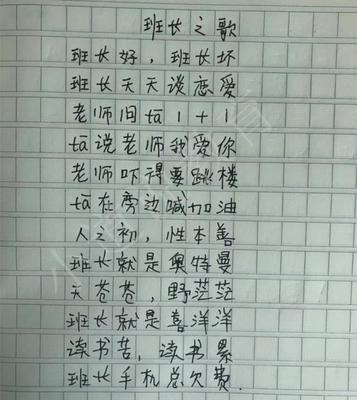 班长之歌
班长好，班长坏
班长天天谈恋爱
老师旧tā 1+1
tā说老师我爱你
老师吓得要跳楼
tā在旁边喊加油
人之初，性本善
班长就是奥特曼
天苍苍，野茫茫
班长就是喜洋洋
读书苦，读书累
班长手机总欠费.